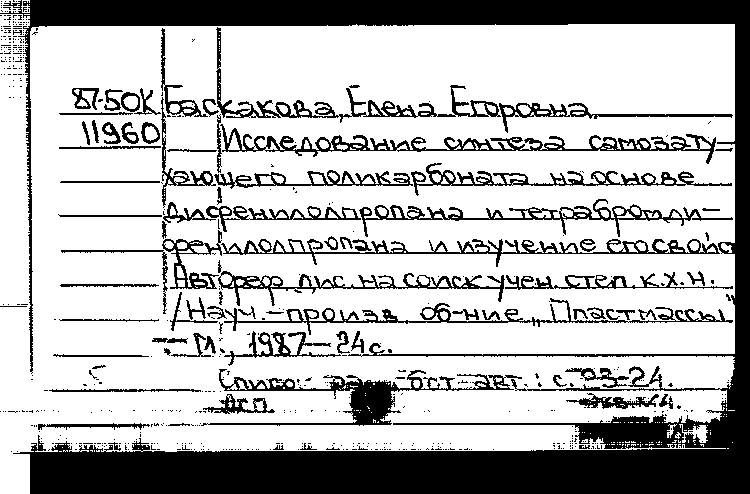 87-50К Баскакова, Елена Егоровна.
11960 Исследование синтеза самозату-
хающего поликарбоната на основе
дисренилолпропана и тетрабромди-
фенилолпропана и изучение его свойс
Автореф. дис. на соиск. учен. степ. к.х.н.
/Науч.-произв. об-ние „Пластмассы"
.- М., 1987.- 24 с.
работ авт.: с. 23-24.
ДСП.